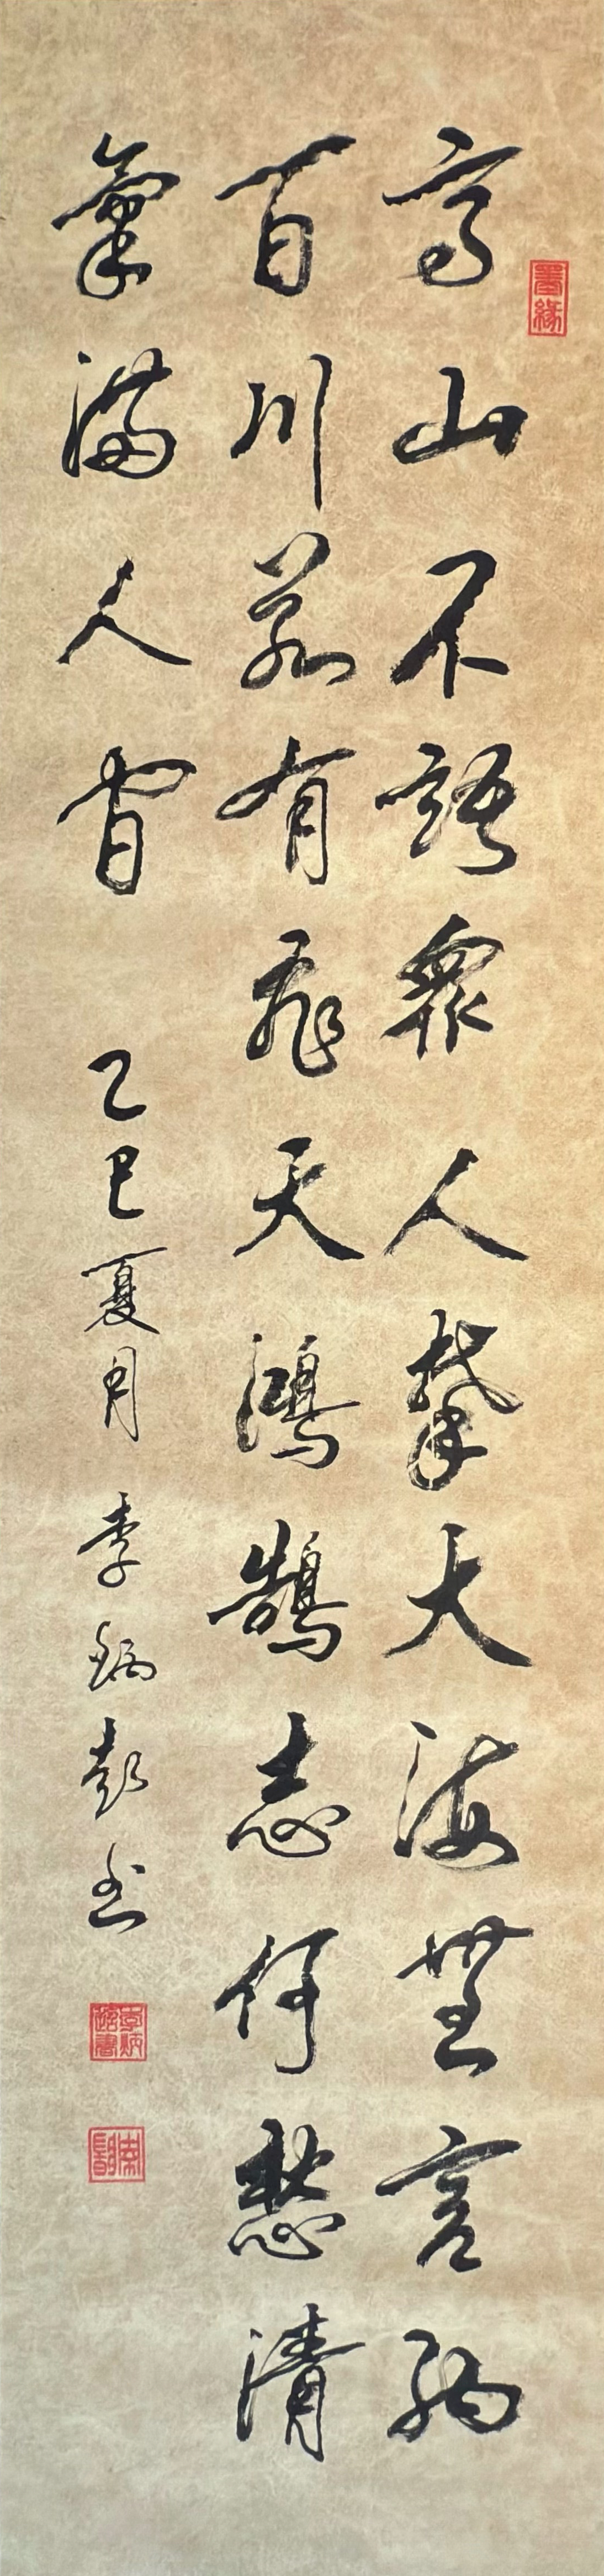 高山不語眾人攀大海無言納
百川若有飛天鴻鵠志何愁清
氣滿人間 乙巳夏月 李炳彭书
墨緣